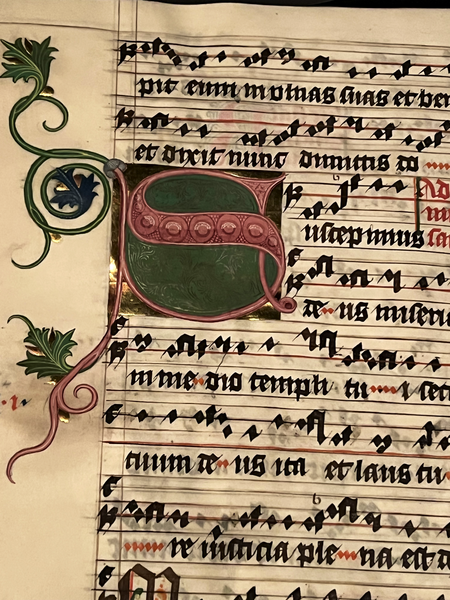 pit eum in vlnas suas et be
et dixit nunc dimittis do
Ad
Suscepimus
de us miseri
in me dio templi tu i secu
tuum de us ita et laus tu
re iusticia ple na est d